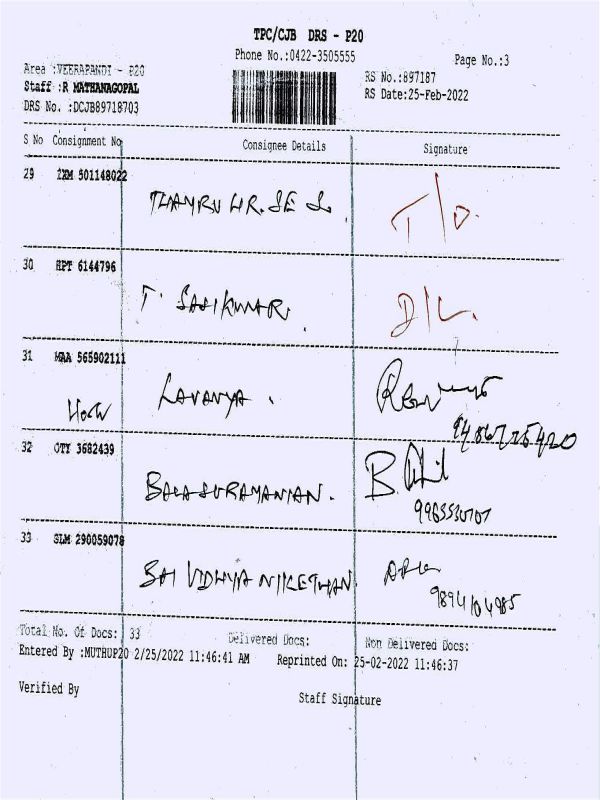 TPC/CJB DRS - P20
Phone No.:0422-3505555
Page No.:3
Area :VEERAPANDI - P20
RS No.:897187
Staff :R MATHANAGOPAL
RS Date:25-Feb-2022
DRS No. :DCJB89718703
S No Consignment No Consignee Details Signature
29 501148022
T/O.
30 RPT 6144796
T. SASIKUMAR.
D/L.
31 MAA 565902111
LAVANYA .
32 OTY 3682439
BALASURAMANIAN.
B.
33 SLM 290059078
SAI VIDHYA NIKETHAN
9894104985
Total No. Of Docs: 33 Delivered Docs: Non Delivered Docs:
Entered By :MUTHUP20 2/25/2022 11:46:41 AM Reprinted On: 25-02-2022 11:46:37
Verified By Staff Signature